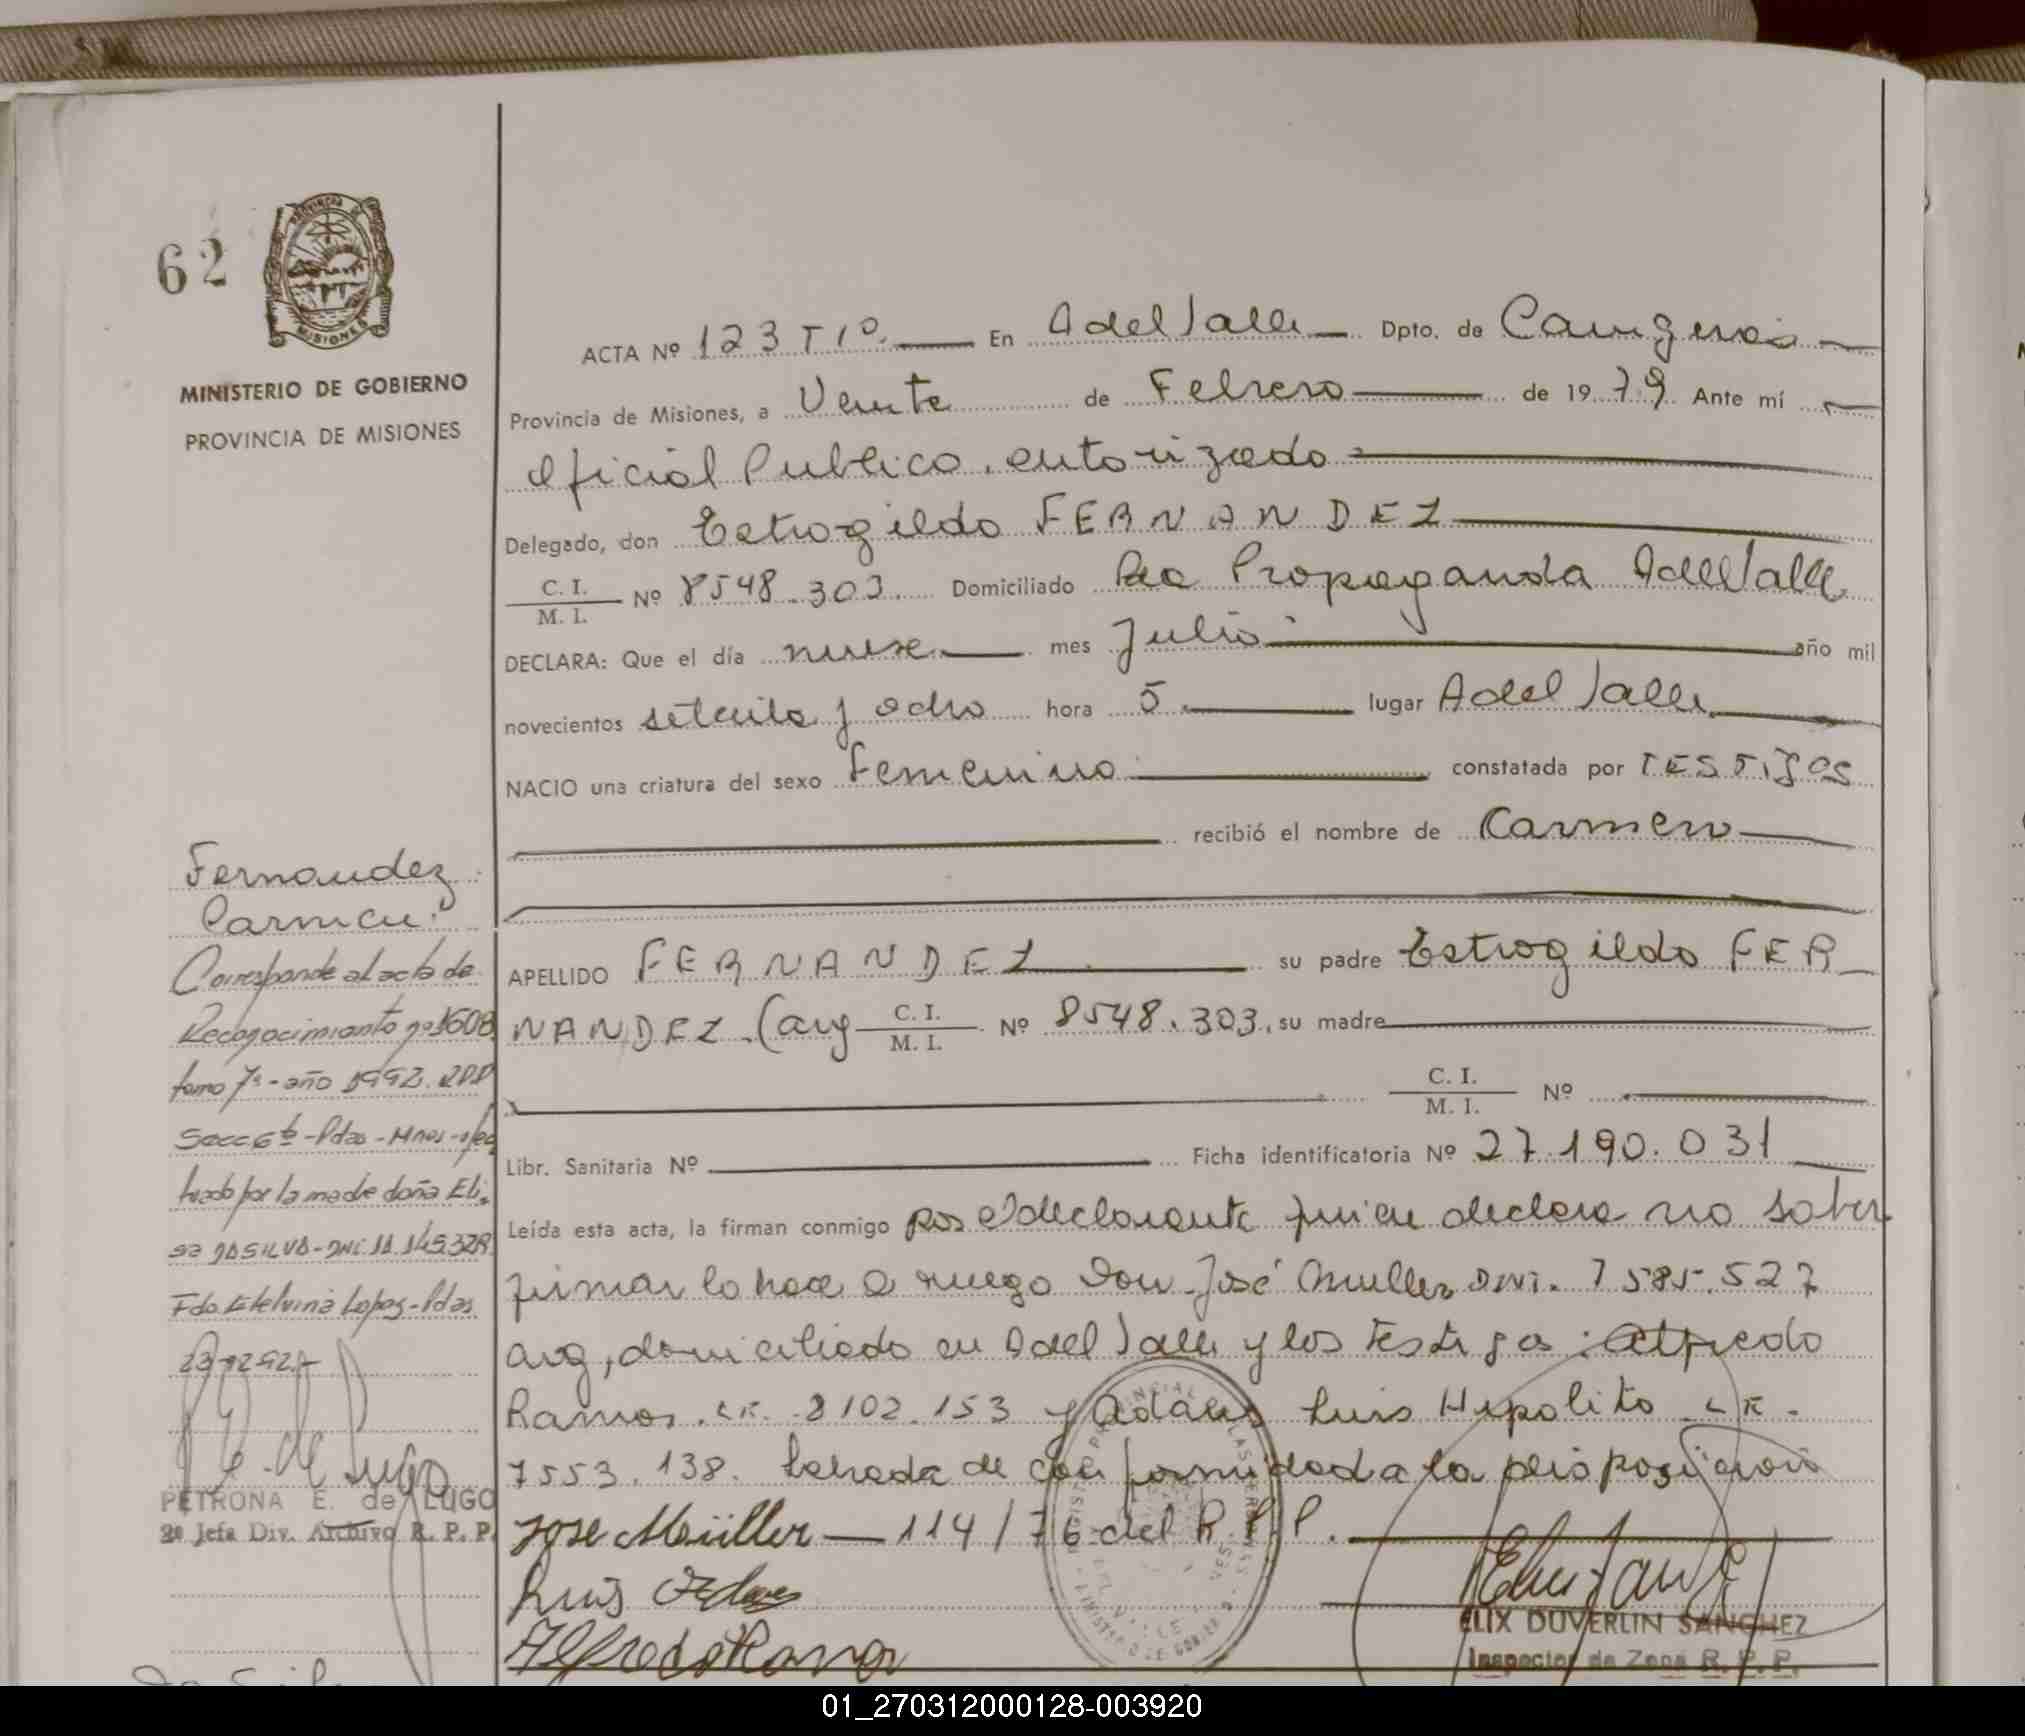 62
PROVINCIA DE
MISIONES
MINISTERIO DE GOBIERNO
PROVINCIA DE MISIONES
ACTA Nº 123 T 1º. En Adel Valle Dpto. de Caingúas
Provincia de Misiones, a Veinte de Febrero de 1979 Ante mí
Oficial Publico autorizado
Delegado, don Estrogildo FERNANDEZ
C. I.
M. I. Nº 8548.303. Domiciliado Pco Propaganda Adel Valle
DECLARA: Que el día nueve mes Julio año mil
novecientos setenta y ocho hora 5 lugar Adel Valle
NACIO una criatura del sexo Femenino constatada por TESTIGOS
recibió el nombre de Carmen
APELLIDO FERNANDEZ su padre Estrogildo FER
NANDEZ (arg C. I.
M. I. Nº 8548.303. su madre
C. I.
M. I. Nº
Libr. Sanitaria Nº Ficha identificatoria Nº 27.190.031
Leída esta acta, la firman conmigo por el declarante quien declara no saber
firmar lo hace a ruego Don José Muller DNI. 7585.527
arg, domiciliado en Adel Valle y los testigos: Alfredo
Ramos. LE. 8102.153 y Adans Luis Hipolito LE.
7553.138. Labrada de conformidad a la disposición
Jose Müller 114/76 del R.P.P.
Luis Adans
Alfredo Ramos
ELIX DUVERLIN SANCHEZ
Inspector de Zona R. P. P.
Fernandez
Carmen
Corresponde al acta de
Reconocimiento nº 1608
tomo 7º - año 1992. RPP
Secc 6ª - Pdas - Mnes - efec
tuado por la madre doña Eli
sa DA SILVA - DNI. 11.145.329.
Fdo Etelvina Lopez - Pdas
23-12-92.-
P. E. de Lugo
PETRONA E. de LUGO
2º Jefa Div. Archivo R. P. P.
01_270312000128-003920